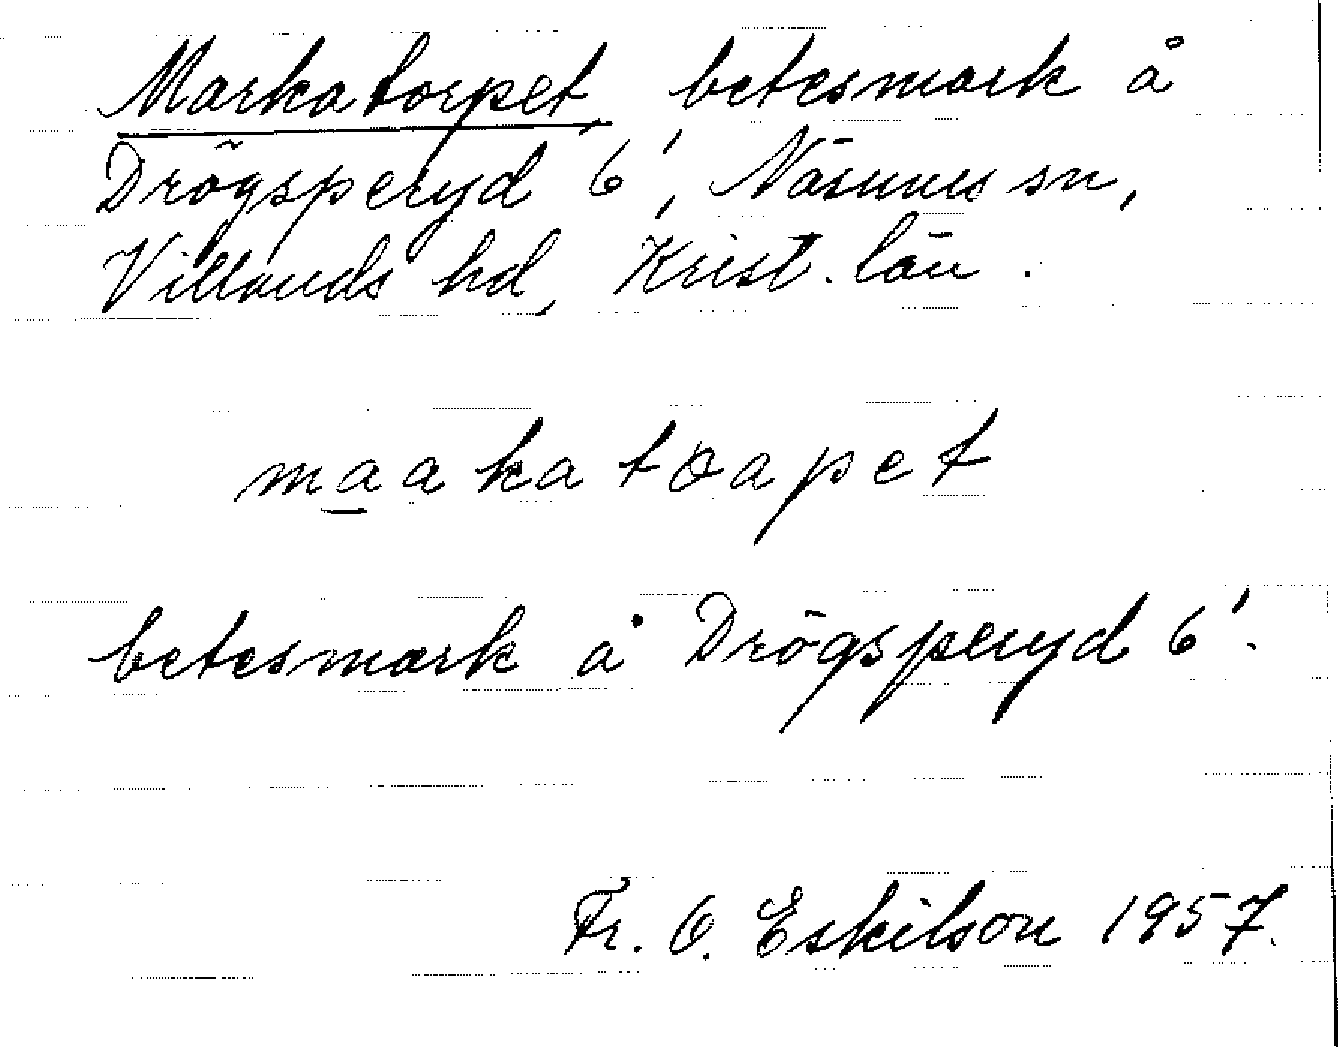 Markatorpet, betesmark å
Drögsperyd 6', Näsums sn,
Villands hd, Krist. län.
maakatoapet
betesmark å Drögsperyd 6'.
Fr. O. Eskilson 1957.